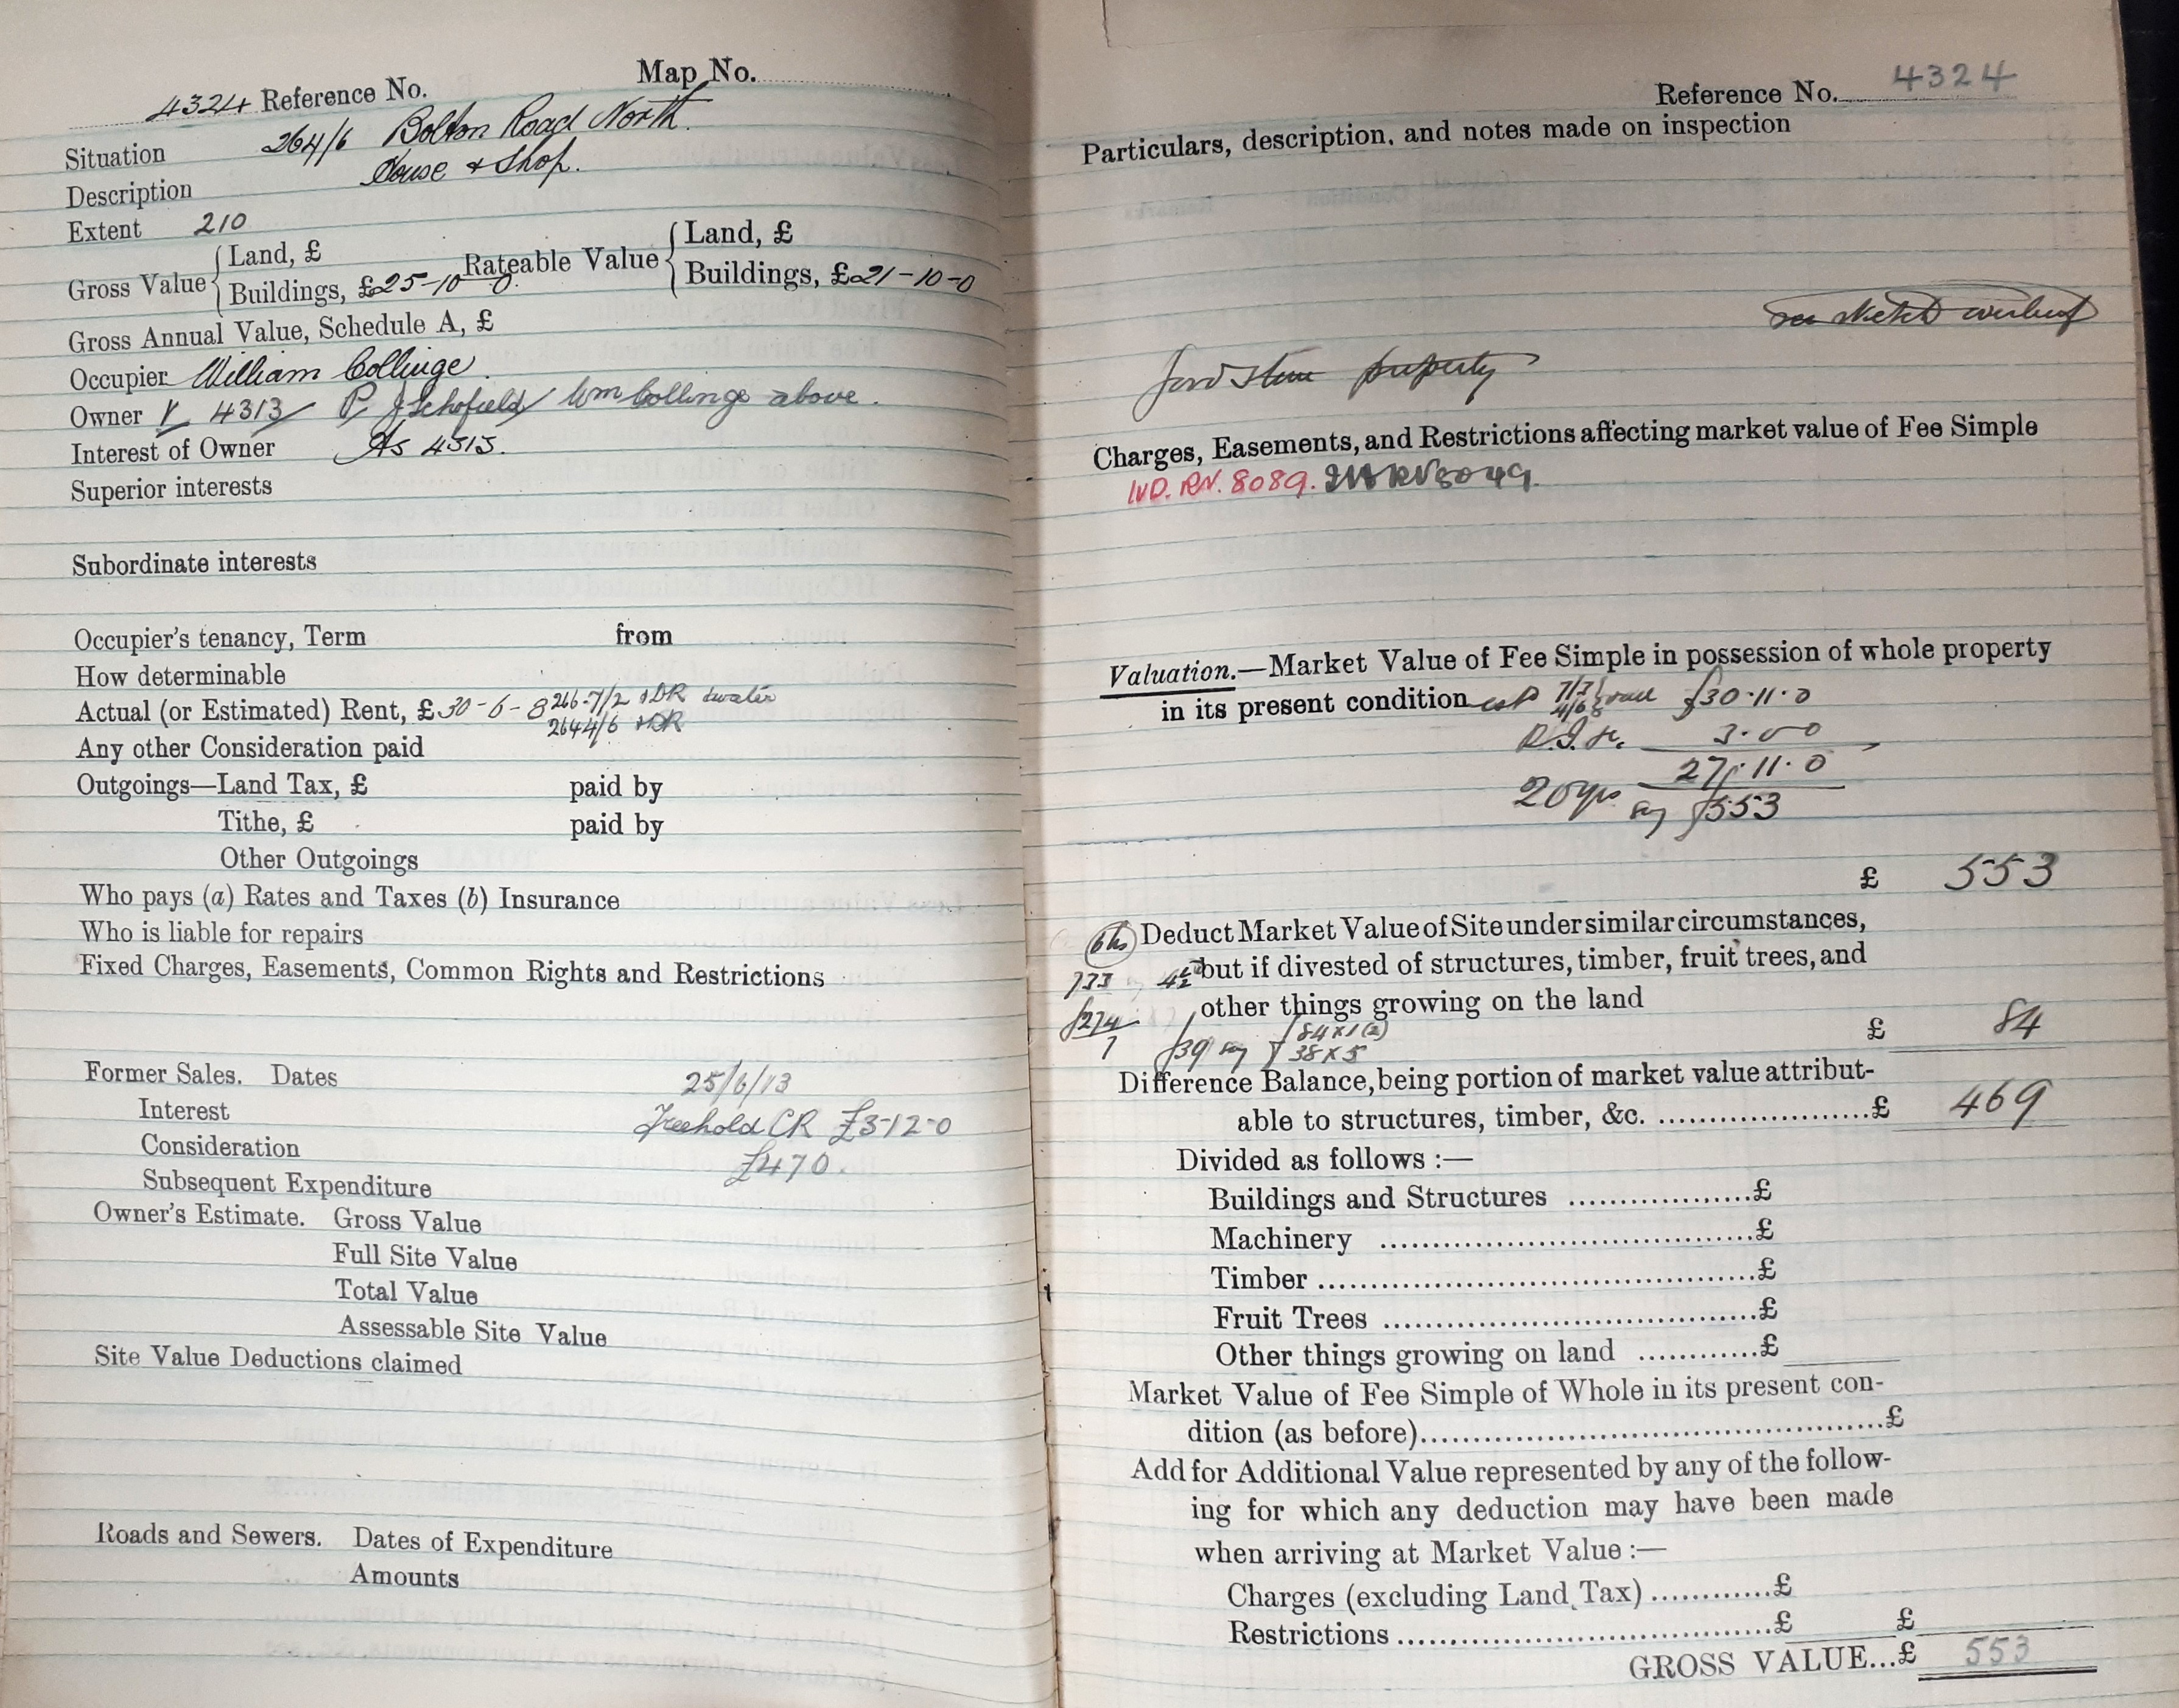 Map No.
4324 Reference No.
Situation 264/6 Bolton Road North.
Description House & Shop.
Extent 210
Gross Value { Land, £
Buildings, £25-10-0.
Rateable Value { Land, £
Buildings, £21-10-0
Gross Annual Value, Schedule A, £
Occupier William Collinge.
Owner V 4313 P J Schofield / Wm Collinge above.
Interest of Owner As 4313.
Superior interests
Subordinate interests
Occupier's tenancy, Term from
How determinable
Actual (or Estimated) Rent, £30-6-8 266-7/2 & DR & water
264 4/6 & DR
Any other Consideration paid
Outgoings—Land Tax, £ paid by
Tithe, £ paid by
Other Outgoings
Who pays (a) Rates and Taxes (b) Insurance
Who is liable for repairs
Fixed Charges, Easements, Common Rights and Restrictions
Former Sales. Dates 25/6/13
Interest Freehold CR £3-12-0
Consideration £470.
Subsequent Expenditure
Owner's Estimate. Gross Value
Full Site Value
Total Value
Assessable Site Value
Site Value Deductions claimed
Roads and Sewers. Dates of Expenditure
Amounts
Reference No. 4324
Particulars, description, and notes made on inspection
see sketch overleaf
property
Charges, Easements, and Restrictions affecting market value of Fee Simple
IVD. RV. 8089.
Valuation.—Market Value of Fee Simple in possession of whole property
in its present condition est 7/3 £30·11·0
4/6
3·0·0
27·11·0
20 yrs say £553
£ 553
Deduct Market Value of Site under similar circumstances,
but if divested of structures, timber, fruit trees, and
other things growing on the land
£39 say 84 x 1 (2)
38 x 5
£ 84
Difference Balance, being portion of market value attribut-
able to structures, timber, &c. ....................£ 469
Divided as follows :—
Buildings and Structures ..................£
Machinery ....................................£
Timber ...........................................£
Fruit Trees ....................................£
Other things growing on land ............£
Market Value of Fee Simple of Whole in its present con-
dition (as before)..............................................£
Add for Additional Value represented by any of the follow-
ing for which any deduction may have been made
when arriving at Market Value :—
Charges (excluding Land Tax) ............£
Restrictions ......................................£ £
GROSS VALUE...£ 553